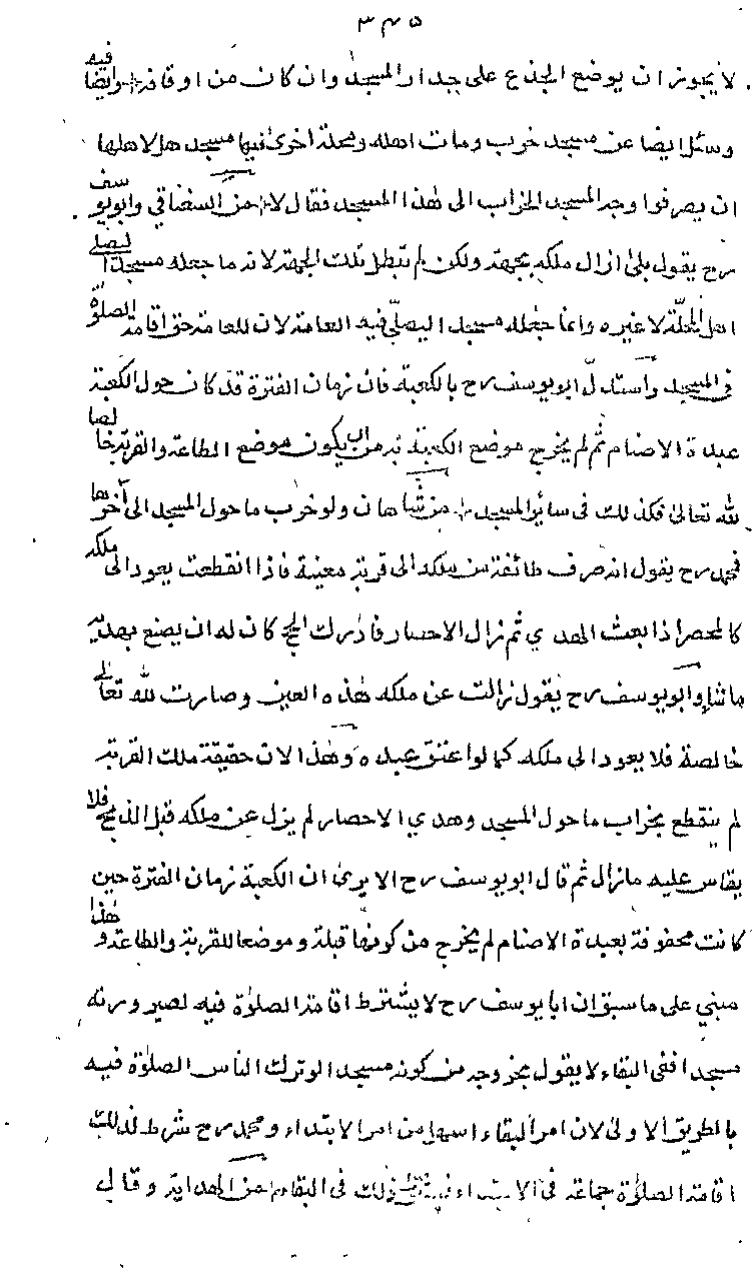 ٣٣٥
لا يجوز ان يوضع الجذع على جدار المسجد وان كان من اوقافه وايضا فيه
وسئل ايضا عن مسجد خرب ومات اهله ومحلة اخرى فيها مسجد هل لاهلها
ان يصرفوا وجه المسجد الخراب الى هٰذا المسجد فقال لا من السغناقي وابويوسف
رح يقول بلى ازال ملكه بجهة ولكن لم تبطل تلك الجهة لانه ما جعله مسجدا ليصلى
اهل المحلّة لا غيره وانما جعله مسجدا ليصلّى فيه العامة لان للعامة حق اقامة الصلوٰة
فى المسجد واستدلّ ابويوسف رح بالكعبة فان زمان الفترة قد كان حول الكعبة
عبدة الاصنام ثم لم يخرج موضع الكعبة به من ان يكون موضع الطاعة والقربة خالصا
لله تعالىٰ فكذلك فى سائر المسجد من شاهان ولو خرب ما حول المسجد الى آخرها
فمحمد رح يقول انه صرف طائفة من ملكه الى قربة معينة فاذا انقطعت يعود الى ملكه
كالمحصر اذا بعث الهدي ثم زال الاحصار فادرك الحج كان له ان يصنع بهديه
ما شاء وابويوسف رح يقول زالت عن ملكه هٰذه العين وصارت لله تعالىٰ
خالصة فلا يعود الى ملكه كما لو اعتق عبده وهٰذا لان حقيقة ملك القربة
لم ينقطع بخراب ما حول المسجد وهدي الاحصار لم يزل عن ملكه قبل الذبح فلا
يقاس عليه ما زال ثم قال ابويوسف رح الا يرىٰ ان الكعبة زمان الفترة حين
كانت محفوفة بعبدة الاصنام لم يخرج من كونها قبلة وموضعا للقربة والطاعة وهٰذا
مبني على ما سبق ان ابا يوسف رح لا يشترط اقامة الصلوٰة فيه لصيرورته
مسجدا ففى البقاء لا يقول بخروجه من كونه مسجدا لو ترك الناس الصلوٰة فيه
بالطريق الاولىٰ لان امر البقاء اسهل من امر الابتداء ومحمد رح شرط لذلك
اقامة الصلوٰة جماعة فى الابتداء فيشترط ذلك فى البقاء من الهداية وقال